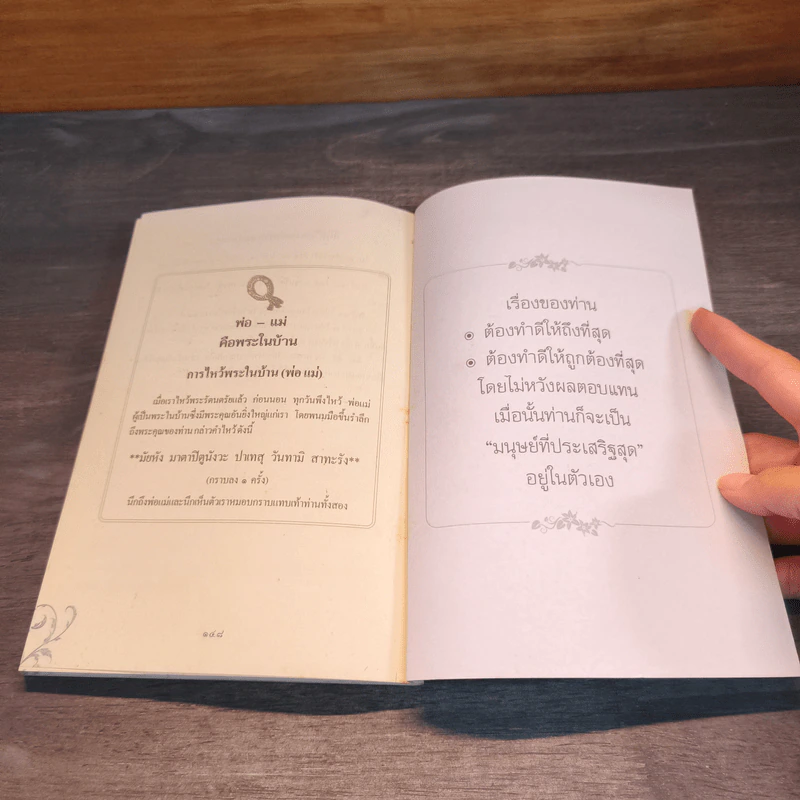 พ่อ – แม่
คือพระในบ้าน
การไหว้พระในบ้าน (พ่อ แม่)
เมื่อเราไหว้พระรัตนตรัยแล้ว ก่อนนอน ทุกวันพึงไหว้ พ่อแม่
ผู้เป็นพระในบ้านซึ่งมีพระคุณอันยิ่งใหญ่แก่เรา โดยพนมมือขึ้นรำลึก
ถึงพระคุณของท่าน กล่าวคำไหว้ ดังนี้
**มัยหัง มาตาปิตูนังวะ ปาเทสุ วันทามิ สาทะรัง**
(กราบลง ๑ ครั้ง)
นึกถึงพ่อแม่และนึกเห็นตัวเราหมอบกราบแทบเท้าท่านทั้งสอง
๑๔๘
เรื่องของท่าน
๏ ต้องทำดีให้ถึงที่สุด
๏ ต้องทำดีให้ถูกต้องที่สุด
โดยไม่หวังผลตอบแทน
เมื่อนั้นท่านก็จะเป็น
“มนุษย์ที่ประเสริฐสุด”
อยู่ในตัวเอง